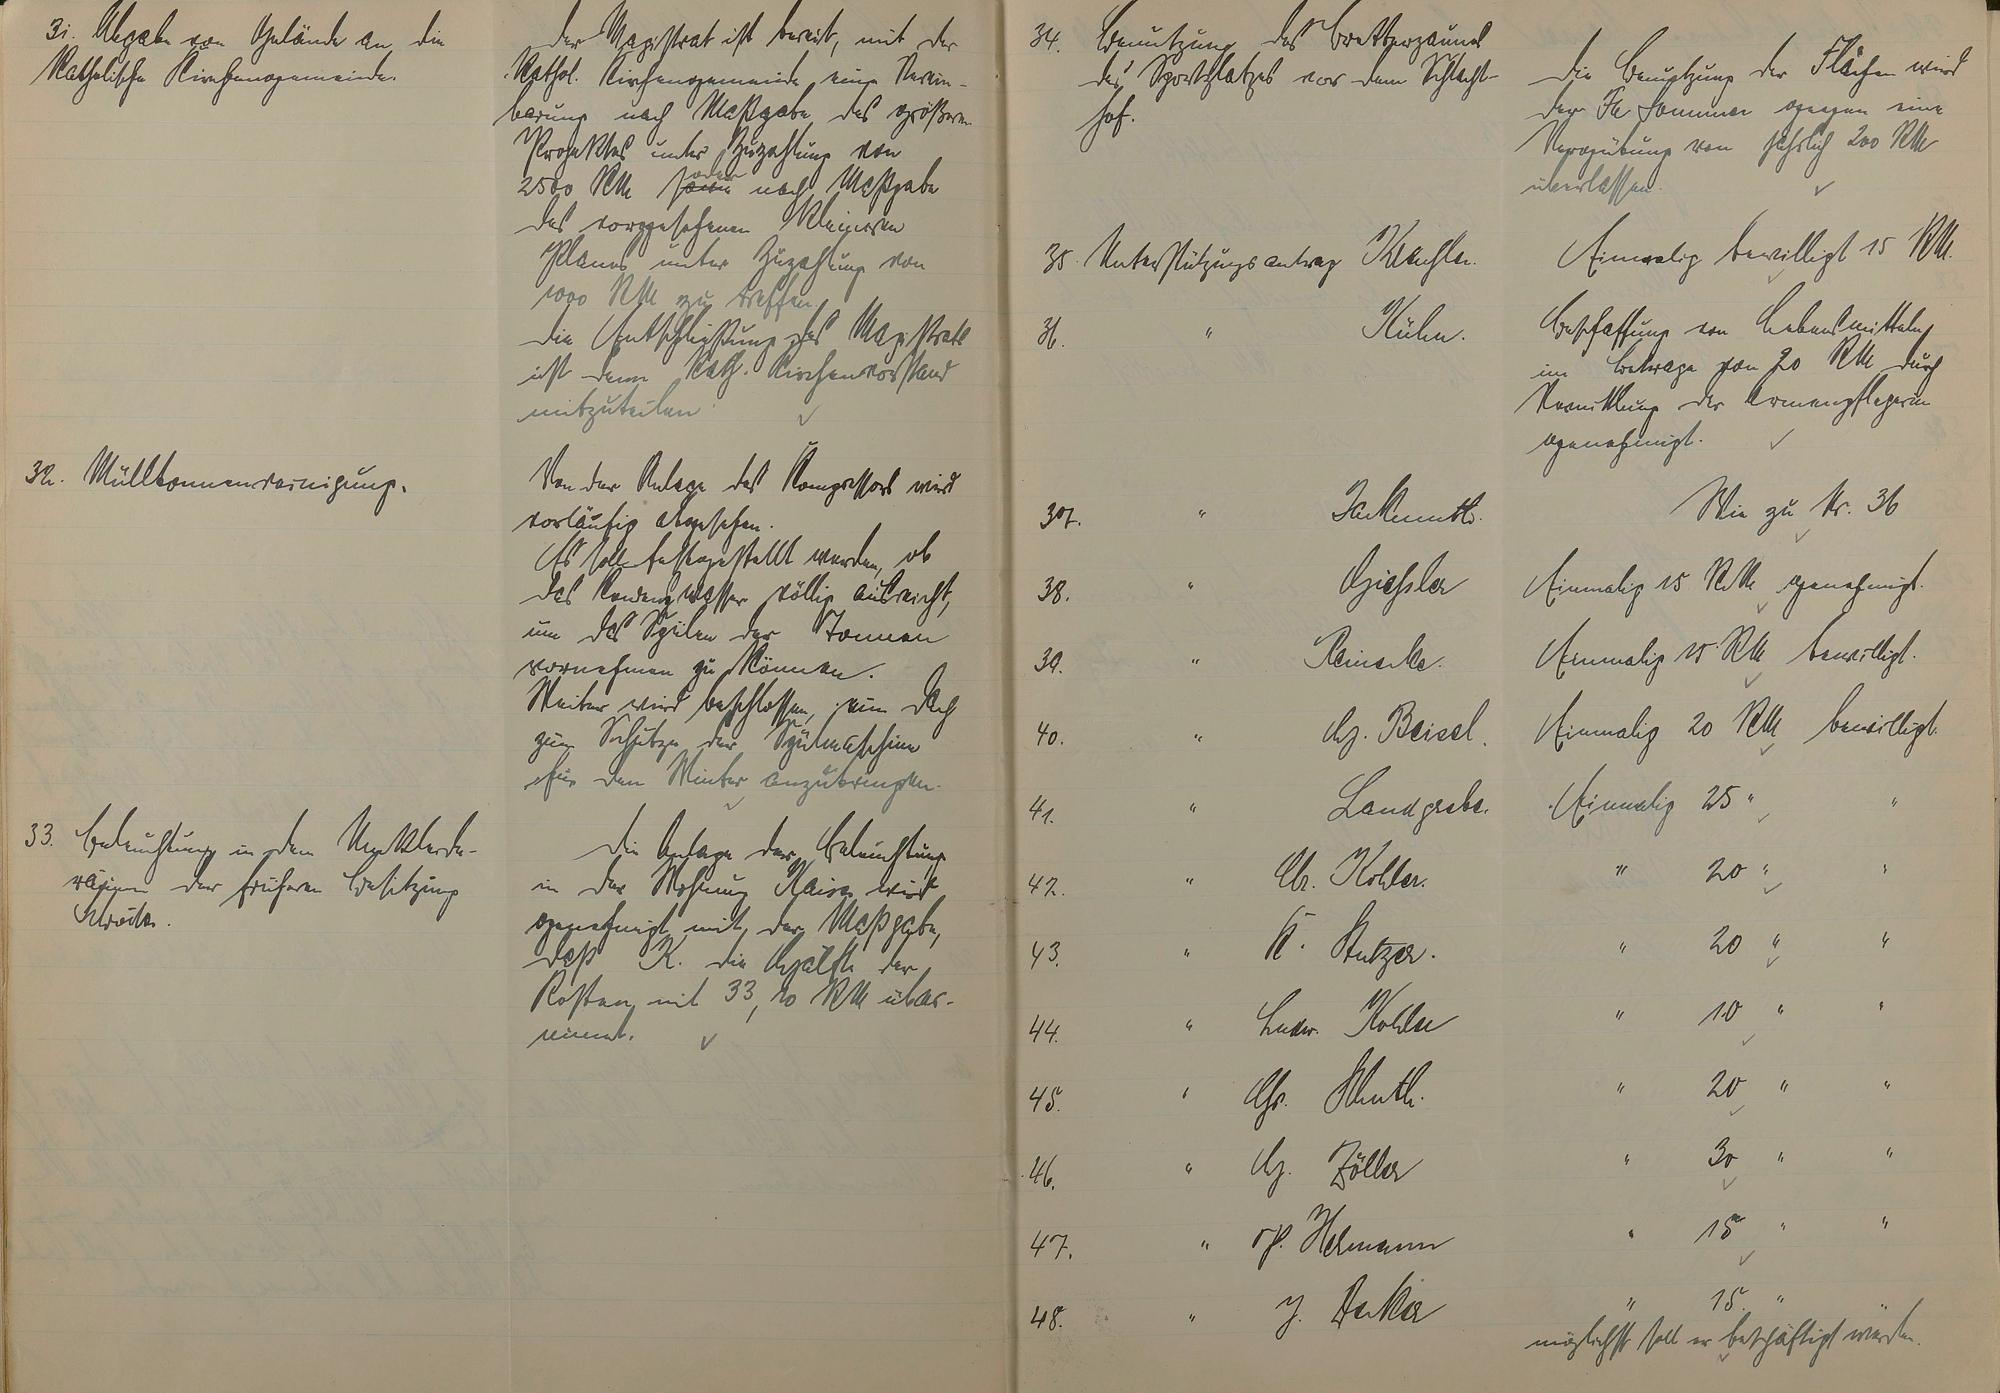 31. Abgabe von Gelände an die
Katholische Kirchengemeinde.
Der Magistrat ist bereit, mit der
Kathol. Kirchengemeinde eine Verein-
barung nach Maßgabe des größeren
Projektes unter Zuzahlung von
2500 RM oder nach Maßgabe
des vorgesehenen kleineren
Planes unter Zuzahlung von
1000 RM zu treffen.
Die Entschließung des Magistrats
ist dem Kath. Kirchenvorstand
mitzuteilen.
32. Mülltonnenreinigung.
Von der Anlage des Kompressors wird
vorläufig abgesehen.
Es soll festgestellt werden, ob
das Kondenswasser völlig ausreicht,
um das Spülen der Tonnen
vornehmen zu können.
Weiter wird beschlossen, ein Dach
zum Schutze der Spülmaschine
für den Winter anzubringen.
33. Beleuchtung in den
der früheren Besitzung
Die Anlage der Beleuchtung
in der Wohnung Kaiser wird
genehmigt mit der Maßgabe,
daß K. die Hälfte der
Kosten mit 33,20 RM über-
nimmt.
34. Benutzung des Bretterzaunes
des Sportplatzes vor dem Schlacht-
hof.
Die Benutzung der Flächen wird
der Fa Sommer gegen eine
Vergütung von jährlich 200 RM
überlassen.
35. Unterstützungsantrag
Einmalig bewilligt 15 RM.
36. " Kühn.
Beschaffung von Lebensmitteln
im Betrage von 20 RM durch
Vermittlung der Armenpflegerin
genehmigt.
37. " Wie zu Nr. 36
38. " Einmalig 15 RM genehmigt.
39. " Reinecke. Einmalig 15 RM bewilligt.
40. " Hch. Beisel. Einmalig 20 RM bewilligt.
41. " Landgrebe. Einmalig 25 " "
42. " Kohler. " 20 " "
43. " K. Stutzer. " 20 " "
44. " Ludw. Kohler " 10 " "
45. " Chr. " 20 " "
46. " Hch. Zöller " 30 " "
47. " Hermann " 15 " "
48. " J. Becker " 15. " "
möglichst soll er beschäftigt werden.